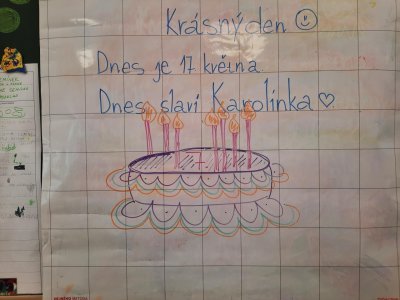 Krásný den ☺
Dnes je 17 května.
Dnes slaví Karolinka ♡